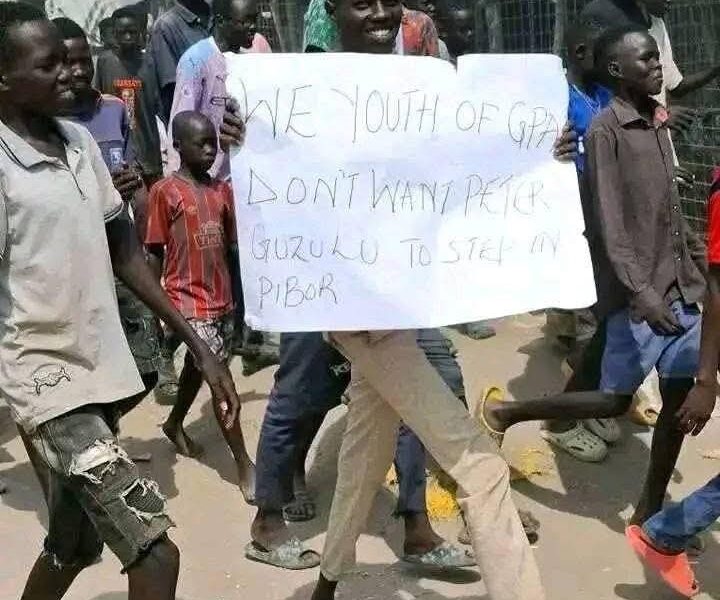 WE YOUTH OF GPA
DON'T WANT PETER
GUZULU TO STEP IN
PIBOR